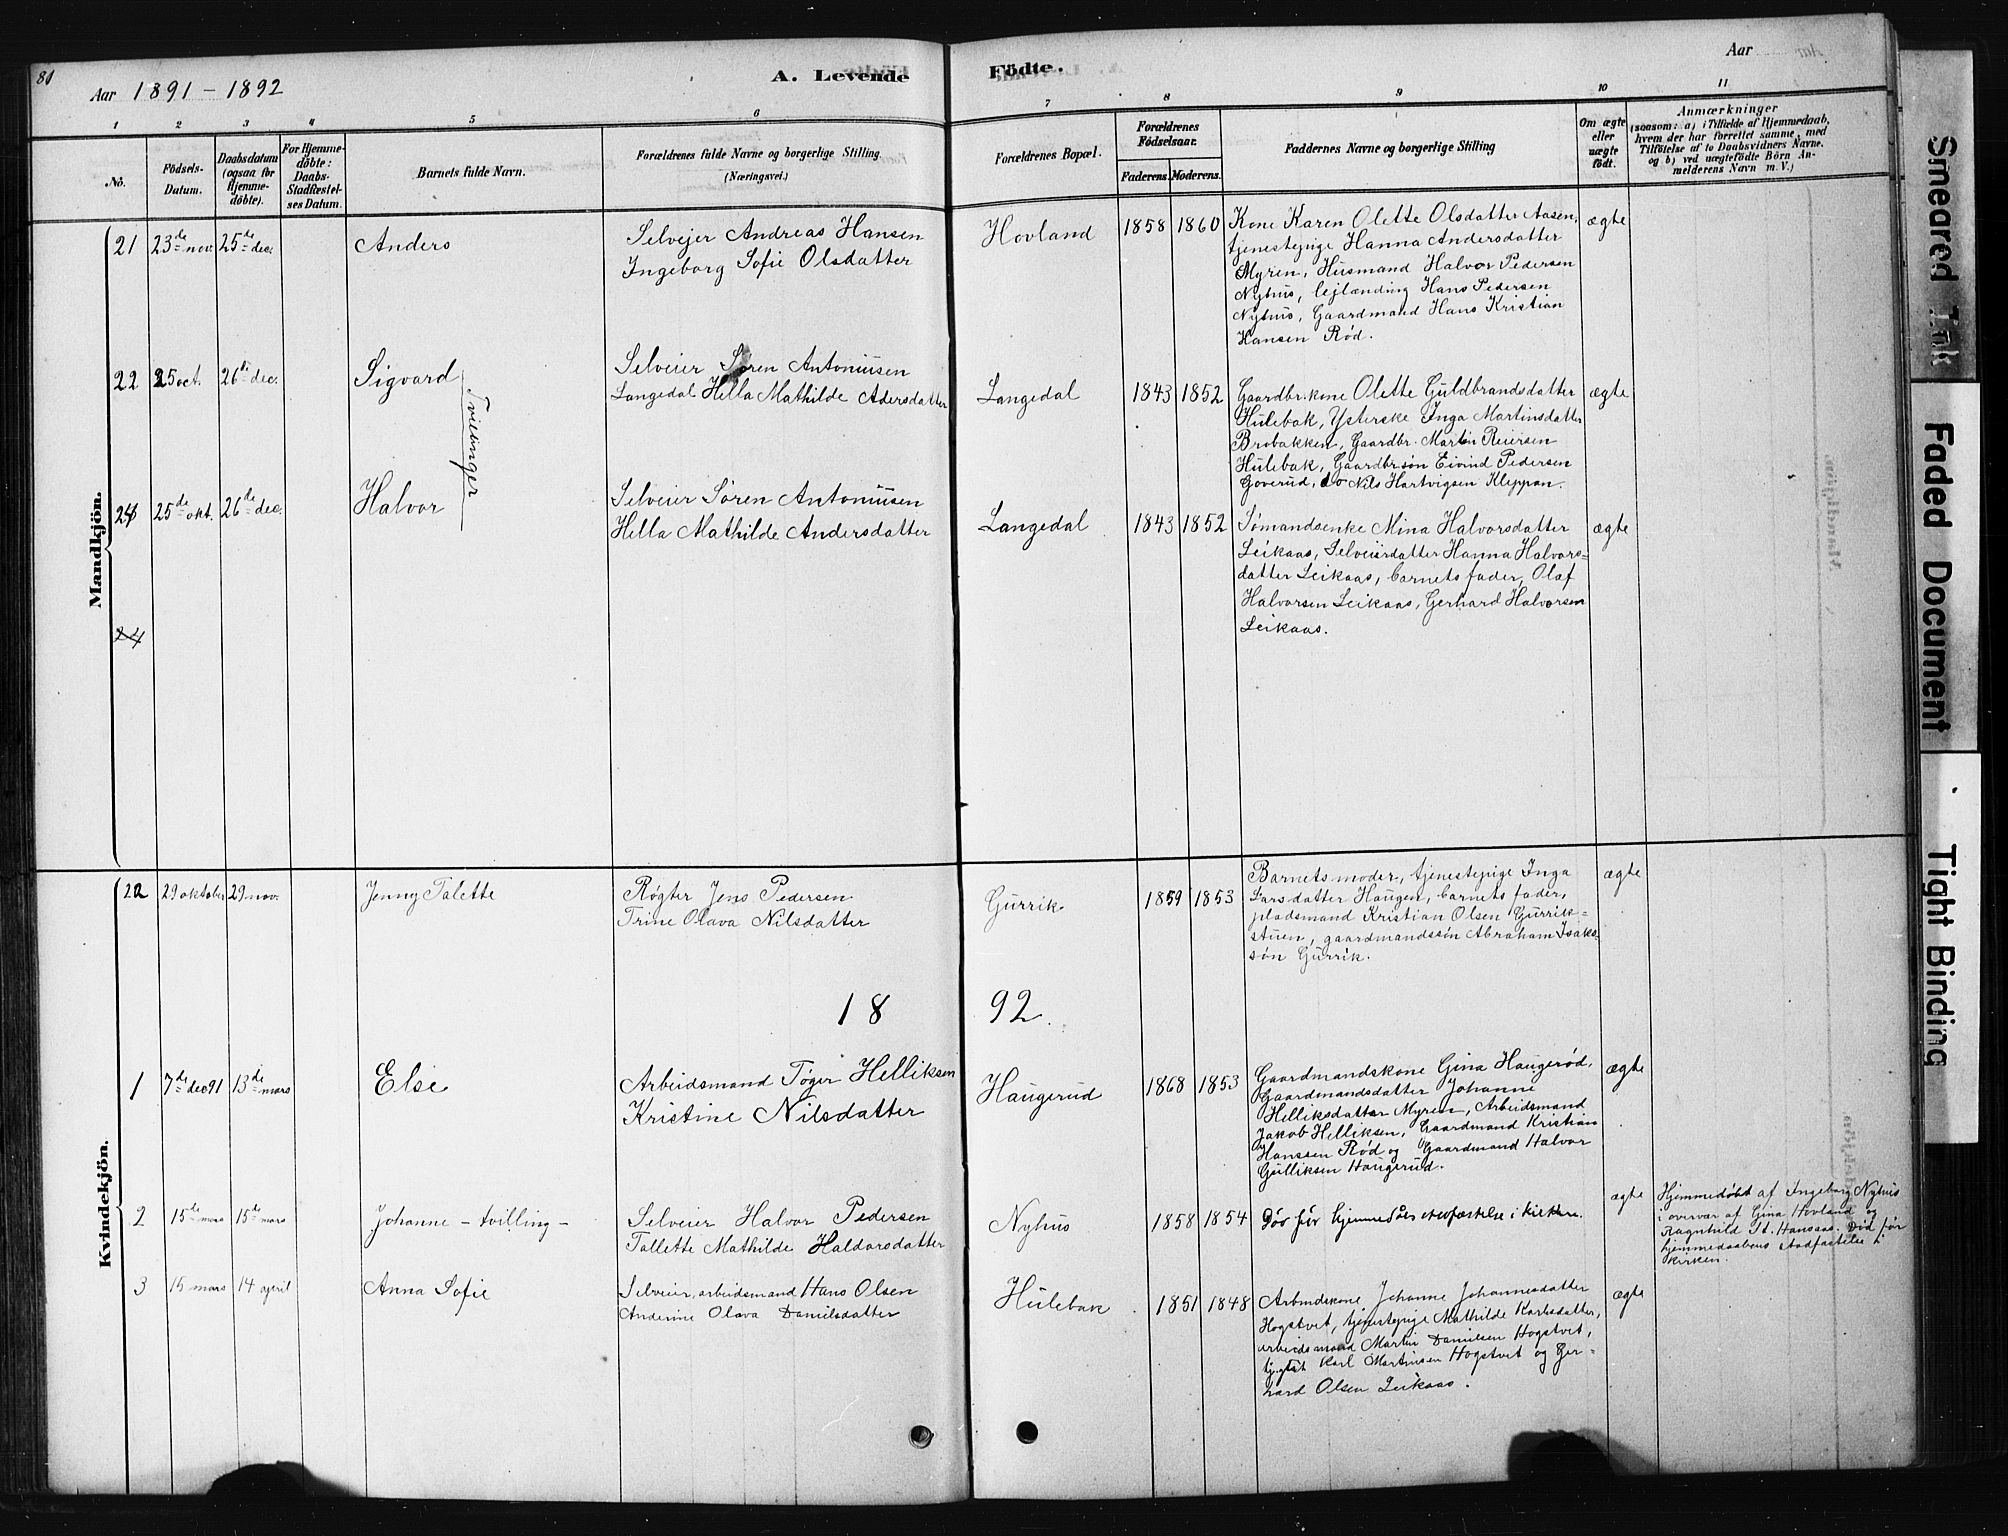 81
Aar 1891 - 1892
A. Levende
Födte.
Aar
1 2 3 4 5 6 7 8 9 10 11
No.
Födsels-Datum.
Daabsdatum (ogsaa for Hjemme-döbte).
For Hjemme-döbte: Daabs-Stadfæstel-ses Datum.
Barnets fulde Navn.
Forældrenes fulde Navne og borgerlige Stilling
(Næringsvei.)
Forældrenes Bopæl.
Forældrenes Födselsaar.
Faderens. Moderens.
Faddernes Navne og borgerlige Stilling
Om ægte eller uægte födt.
Anmærkninger
(saasom: a) i Tilfælde af Hjemmedaab,
hvem der har forrettet samme, med
Tilföielse af to Daabsvidners Navne.
og b) ved uægtefödte Börn An-
melderens Navn m. V.)
Mandkjön.
21 23de nov. 25de dec. Anders
Selvejer Andreas Hansen
Ingeborg Sofie Olsdatter
Hovland 1858 1860
Kone Karen Olette Olsdatter Aasen,
tjenestepige Hanna Andersdatter
Myren, Husmand Halvor Pedersen
Nyhus, lejlænding Hans Pedersen
Nyhus, Gaardmand Hans Kristian
Hansen Rød.
ægte
22 25 oct. 26de dec. Sigvard
Tvillinger
Selveier Søren Antoniusen
Langedal Hella Mathilde Adersdatter
Langedal 1843 1852
Gaardbr.kone Olette Guldbrandsdatter
Hulebak, Ysterske Inga Martinsdatter
Brobakken, Gaardbr. Martin Reiersen
Hulebak, Gaardbrsøn Eivind Pedersen
Goverud, do Nils Hartvigsen Kleppan.
ægte
24 25de okt. 26de dec. Halvor
Selveier Søren Antoniusen
Hella Mathilde Andersdatter
Langedal 1843 1852
Sømandsenke Mina Halvorsdatter
Leikaas, Selveierdatter Hanna Halvors=
datter Leikaas, barnets fader, Olaf
Halvorsen Leikaas, Gerhard Halvorsen
Leikaas.
ægte
24
Kvindekjön.
22 29 oktober 29 nov. Jenny Talette
Røgter Jens Pedersen
Trine Olava Nilsdatter
Gurrik 1859 1853
Barnets moder, tjenestepige Inga
Larsdatter Haugen, barnets fader,
pladsmand Kristian Olsen Gurrik=
stuen, gaardmandssøn Abraham Isak-
søn Gurrik.
ægte
18 92.
1 7de dec 91 13de mars Else
Arbeidsmand Tøger Helliksen
Kristine Nilsdatter
Haugerud 1868 1853
Gaardmandskone Gina Haugerød,
Gaardmandsdatter Johanne
Helliksdatter Myren, Arbeidsmand
Jakob Helliksen, Gaardmand Kristian
Hanssen Rød og Gaardmand Halvor
Gulliksen Haugerud.
ægte
2 15de mars 15de mars Johanne - tvilling -
Selveier Halvor Pedersen
Tallette Mathilde Haldorsdatter
Nyhus 1858 1854
Døv før hjemmedøbs stadfæstelse i kirken.
ægte
Hjemmedøbt af Ingeborg Nyhus
i overvær af Gina Hovland og
Ragnhild St. Hansaas. Død før
hjemmedaabens stadfæstelse i
kirken.
3 15 mars 14 april Anna Sofie
Selveier, arbeidsmand Hans Olsen
Anderine Olava Danielsdatter
Hulebak 1851 1848
Arbeidskone Johanne Johannesdatter
Hogstvet, tjenestepige Mathilde Karlsdatter,
arbeidsmand Martin Danielsen Hogstvet,
Karl Martinsen Hogstvet og Ger-
hard Olsen Leikaas.
ægte
Smeared Ink
Faded Document
Tight Binding